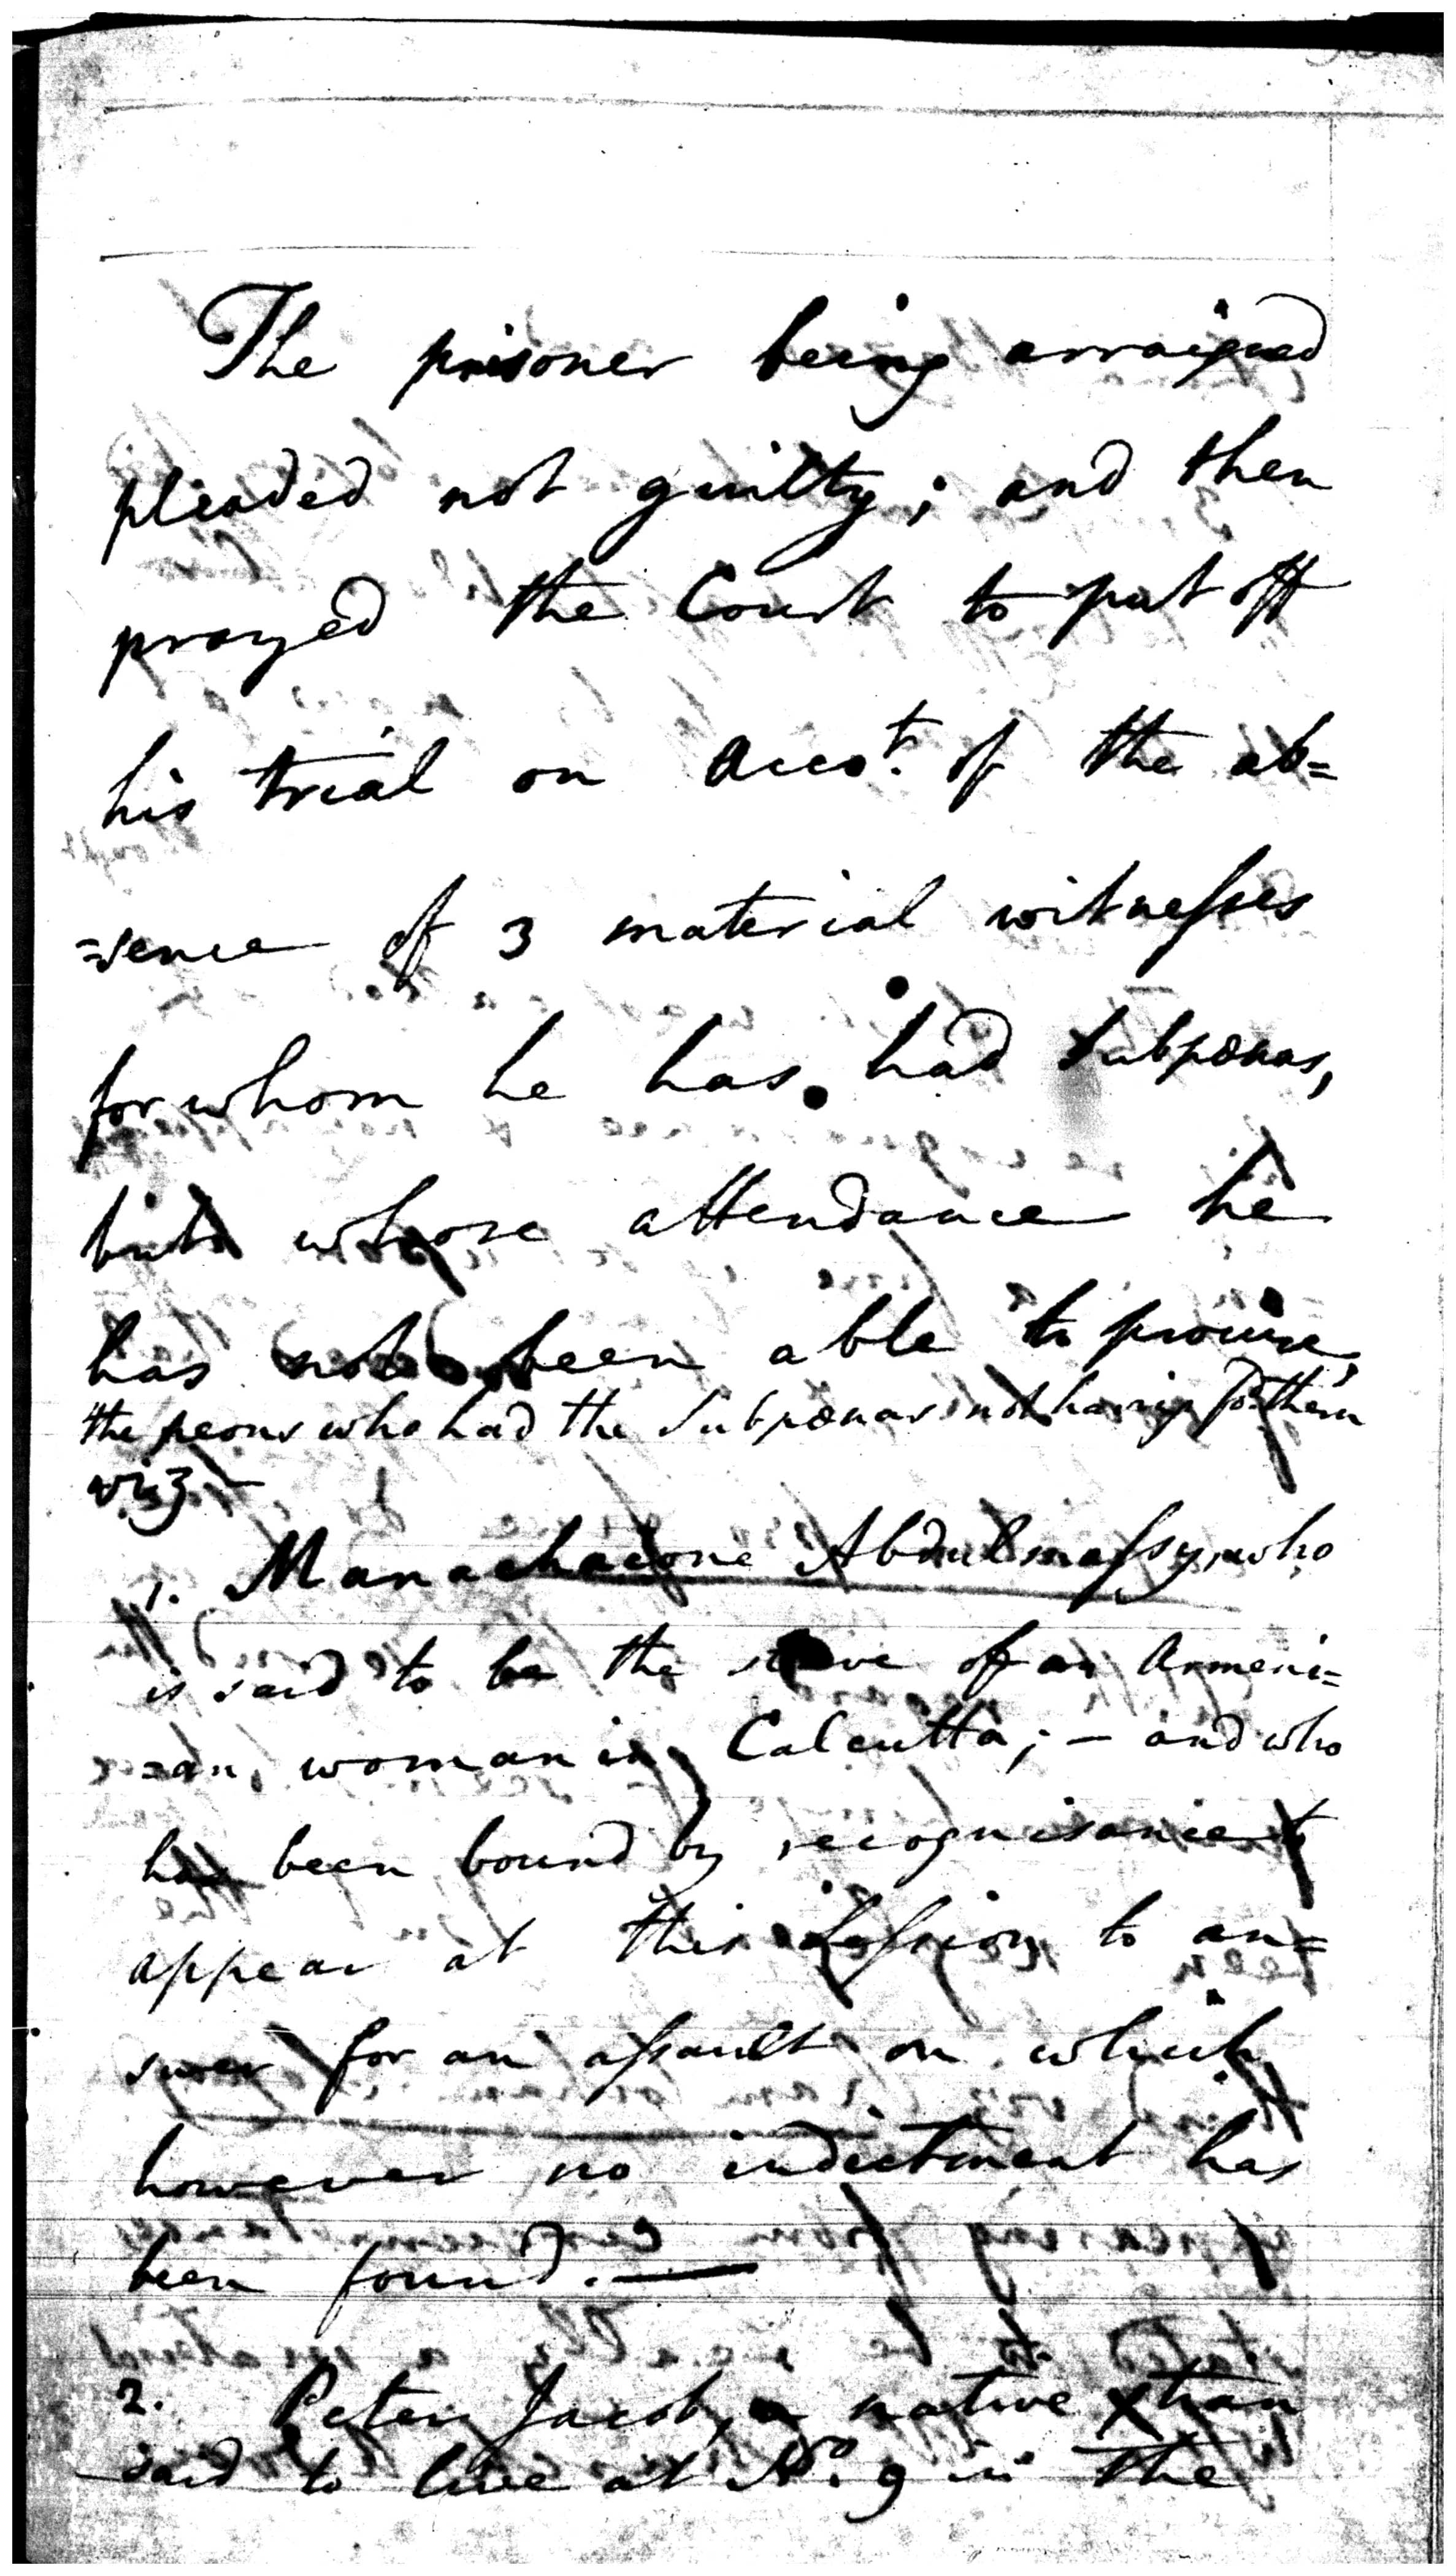 The prisoner being arraigned
pleaded not guilty; and then
prayed the Court to put off
his trial on Acco.t of the ab=
=sence of 3 material witnesses
for whom he has had Subpœnas,
but whose attendance he
has not been able to procure,
the peons who had the Subpœnas not having fd. them
viz —
1. Manachaone Abdulmassy, who
is said to be the slave of an Armeni=
=an woman in Calcutta; — and who
has been bound by recognisance to
appear at this Session to an=
swer for an assault on which
however no indictment has
been found. —
2. Peter Jacob, a native Xtian
said to live at No. 9 in the